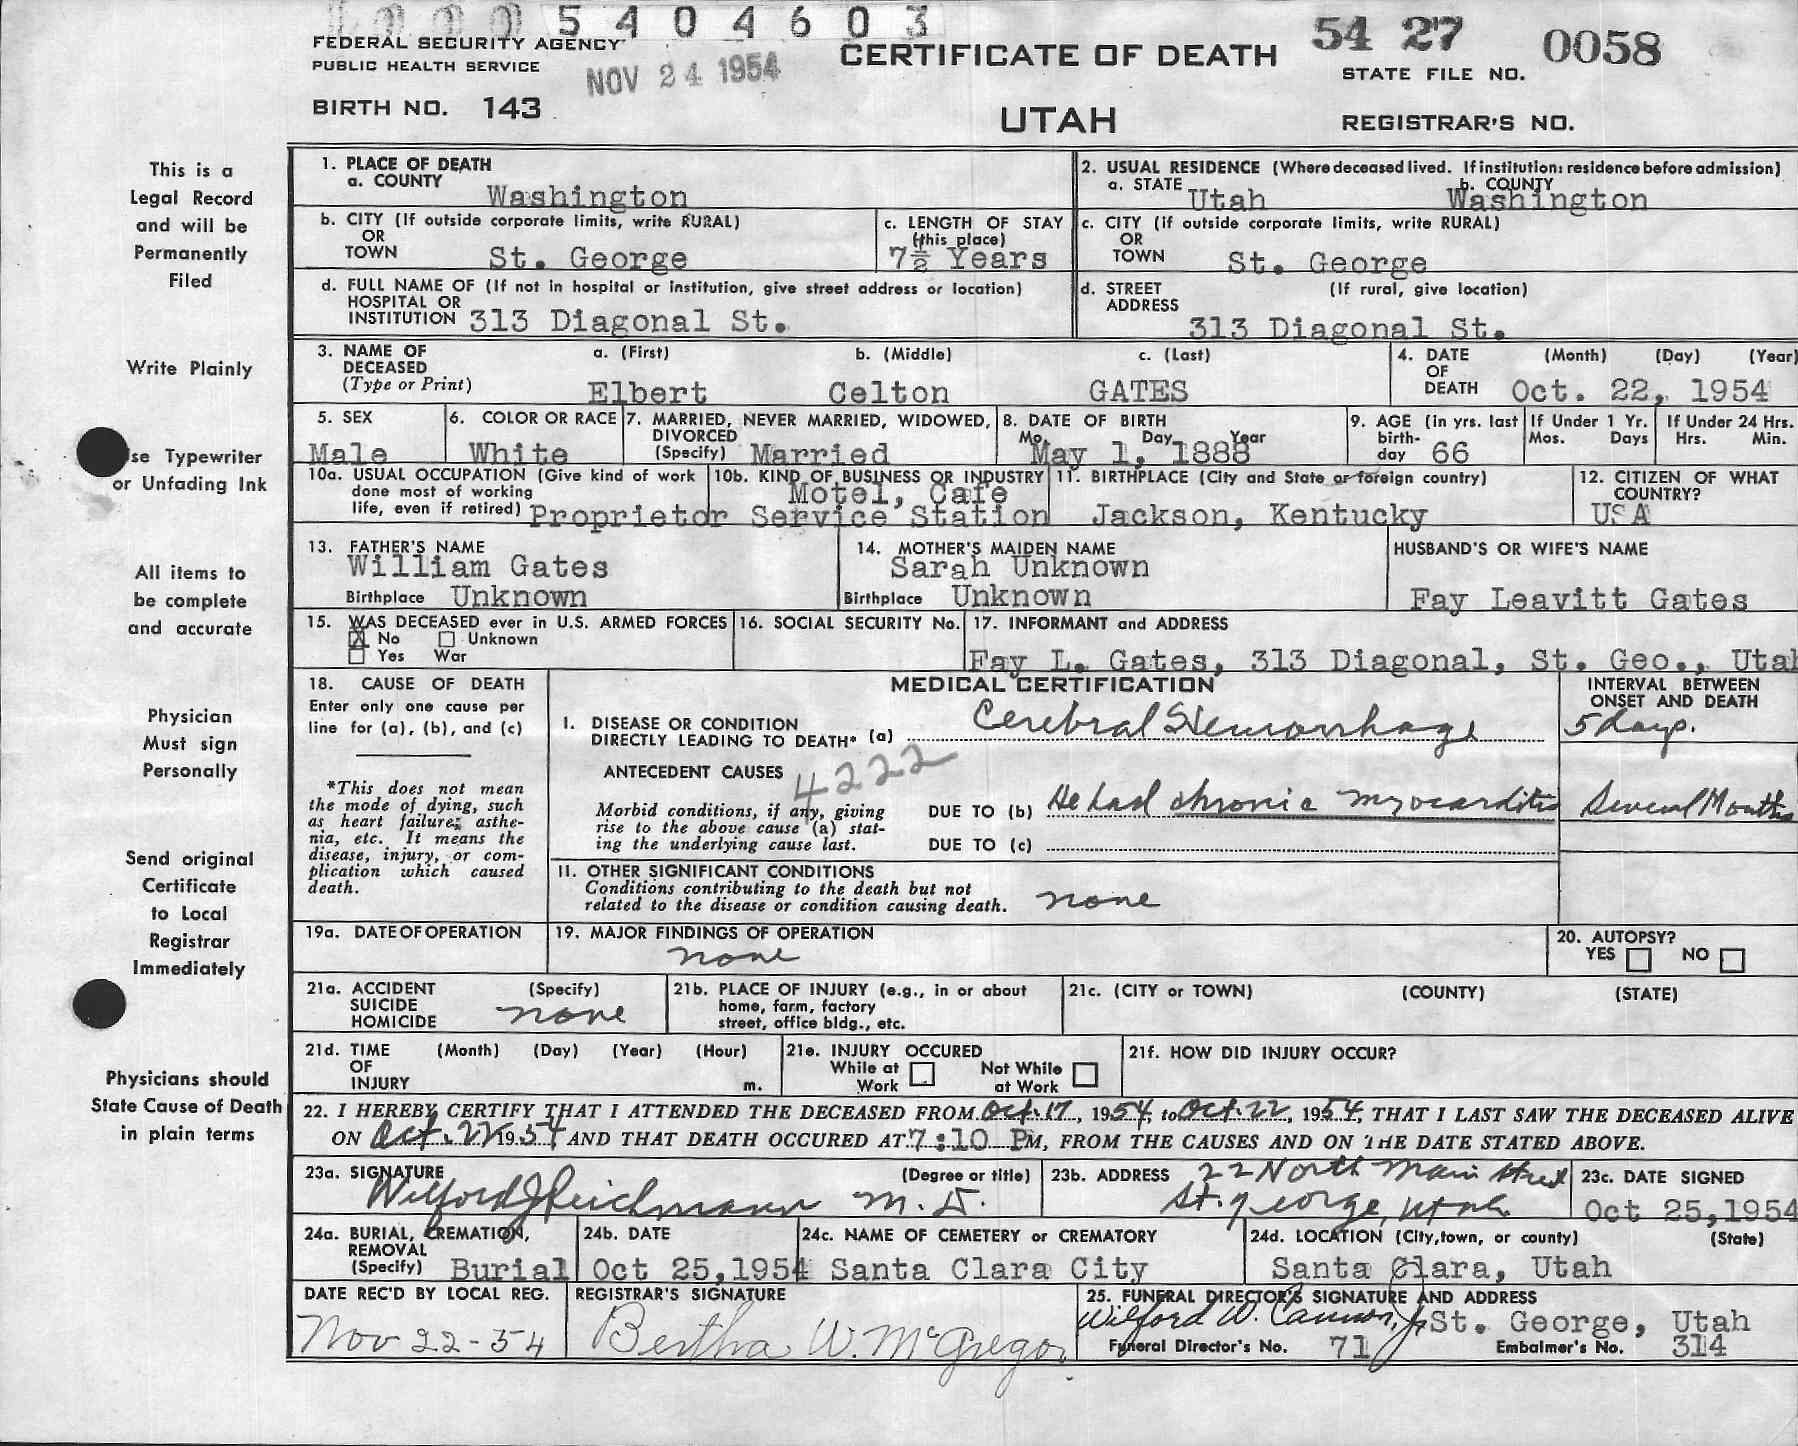 5 4 0 4 6 0 3
FEDERAL SECURITY AGENCY
PUBLIC HEALTH SERVICE
NOV 24 1954
CERTIFICATE OF DEATH
54 27 0058
STATE FILE NO.
BIRTH NO. 143
UTAH
REGISTRAR'S NO.
This is a
Legal Record
and will be
Permanently
Filed
Write Plainly
se Typewriter
or Unfading Ink
All items to
be complete
and accurate
Physician
Must sign
Personally
Send original
Certificate
to Local
Registrar
Immediately
Physicians should
State Cause of Death
in plain terms
1. PLACE OF DEATH
a. COUNTY Washington
2. USUAL RESIDENCE (Where deceased lived. If institution: residence before admission)
a. STATE Utah b. COUNTY Washington
b. CITY (If outside corporate limits, write RURAL)
OR
TOWN St. George
c. LENGTH OF STAY
(this place)
7½ Years
c. CITY (if outside corporate limits, write RURAL)
OR
TOWN St. George
d. FULL NAME OF (If not in hospital or institution, give street address or location)
HOSPITAL OR
INSTITUTION 313 Diagonal St.
d. STREET (If rural, give location)
ADDRESS
313 Diagonal St.
3. NAME OF a. (First) b. (Middle) c. (Last)
DECEASED
(Type or Print) Elbert Celton GATES
4. DATE (Month) (Day) (Year)
OF
DEATH Oct. 22, 1954
5. SEX
Male
6. COLOR OR RACE
White
7. MARRIED, NEVER MARRIED, WIDOWED,
DIVORCED
(Specify) Married
8. DATE OF BIRTH
Mo. Day Year
May 1, 1888
9. AGE (in yrs. last
birth-
day 66
If Under 1 Yr.
Mos. Days
If Under 24 Hrs.
Hrs. Min.
10a. USUAL OCCUPATION (Give kind of work
done most of working
life, even if retired) Proprietor
10b. KIND OF BUSINESS OR INDUSTRY
Motel, Cafe
Service Station
11. BIRTHPLACE (City and State or foreign country)
Jackson, Kentucky
12. CITIZEN OF WHAT
COUNTRY?
USA
13. FATHER'S NAME
William Gates
Birthplace Unknown
14. MOTHER'S MAIDEN NAME
Sarah Unknown
Birthplace Unknown
HUSBAND'S OR WIFE'S NAME
Fay Leavitt Gates
15. WAS DECEASED ever in U.S. ARMED FORCES
X No Unknown
Yes War
16. SOCIAL SECURITY No.
17. INFORMANT and ADDRESS
Fay L. Gates, 313 Diagonal, St. Geo., Utah
18. CAUSE OF DEATH
Enter only one cause per
line for (a), (b), and (c)
*This does not mean
the mode of dying, such
as heart failure, asthe-
nia, etc. It means the
disease, injury, or com-
plication which caused
death.
MEDICAL CERTIFICATION
INTERVAL BETWEEN
ONSET AND DEATH
I. DISEASE OR CONDITION
DIRECTLY LEADING TO DEATH* (a) Cerebral Hemorrhage 5 days.
ANTECEDENT CAUSES 4222
Morbid conditions, if any, giving
rise to the above cause (a) stat-
ing the underlying cause last.
DUE TO (b) He had chronic myocarditis Several Months
DUE TO (c)
11. OTHER SIGNIFICANT CONDITIONS
Conditions contributing to the death but not
related to the disease or condition causing death. none
19a. DATE OF OPERATION
19. MAJOR FINDINGS OF OPERATION
none
20. AUTOPSY?
YES NO
21a. ACCIDENT (Specify)
SUICIDE
HOMICIDE none
21b. PLACE OF INJURY (e.g., in or about
home, farm, factory
street, office bldg., etc.
21c. (CITY or TOWN) (COUNTY) (STATE)
21d. TIME (Month) (Day) (Year) (Hour)
OF
INJURY m.
21e. INJURY OCCURED
While at Not While
Work at Work
21f. HOW DID INJURY OCCUR?
22. I HEREBY CERTIFY THAT I ATTENDED THE DECEASED FROM Oct. 17, 1954, to Oct. 22, 1954, THAT I LAST SAW THE DECEASED ALIVE
ON Oct. 22 1954 AND THAT DEATH OCCURED AT 7:10 PM, FROM THE CAUSES AND ON THE DATE STATED ABOVE.
23a. SIGNATURE (Degree or title)
Wilford J Reichmann M.D.
23b. ADDRESS 22 North Main Street
St. George, Utah
23c. DATE SIGNED
Oct 25,1954
24a. BURIAL, CREMATION,
REMOVAL
(Specify) Burial
24b. DATE
Oct 25,1954
24c. NAME OF CEMETERY or CREMATORY
Santa Clara City
24d. LOCATION (City,town, or county) (State)
Santa Clara, Utah
DATE REC'D BY LOCAL REG.
Nov 22-54
REGISTRAR'S SIGNATURE
Bertha W. McGregor
25. FUNERAL DIRECTOR'S SIGNATURE AND ADDRESS
Wilford W. Cannon, Jr St. George, Utah
Funeral Director's No. 71 Embalmer's No. 314